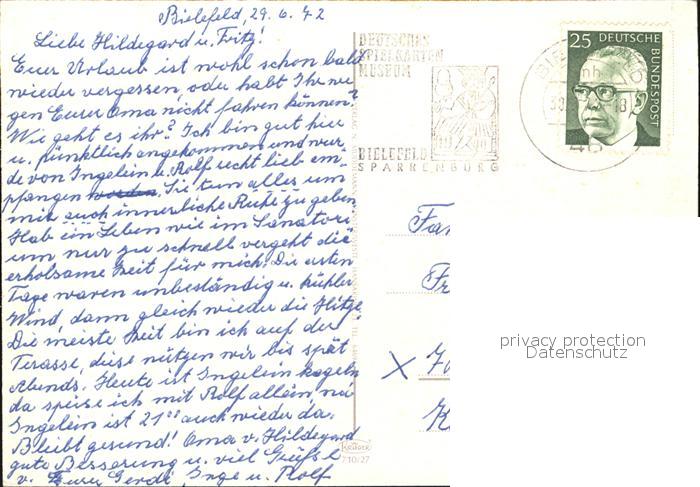 Bielefeld, 29.6.72
Liebe Hildegard u. Fritz!
Euer Urlaub ist wohl schon bald
wieder vergessen, oder habt Ihr we-
gen Eurer Oma nicht fahren können?
Wie geht es ihr? Ich bin gut hier
u. pünktlich angekommen und wur-
de von Ingelein u. Rolf recht lieb em-
pfangen worden. Sie tun alles um
mir auch innerliche Ruhe zu geben
Hab ein Leben wie im Sanatori
um nur zu schnell vergeht die
erholsame Zeit für mich. Die ersten
Tage waren unbeständig u. kühler
Wind, dann gleich wieder die Hitze.
Die meiste Zeit bin ich auf der
Terasse, diese nützen wir bis spät
Abends. Heute ist Ingelein kegeln
da speise ich mit Rolf allein,
Ingelein ist 21°° auch wieder da.
Bleibt gesund! Oma v. Hildegard
gute Besserung u. viel Grüße
v. Eurer Gerdi, Inge u. Rolf
DEUTSCHES
SPIELKARTEN
MUSEUM
BIELEFELD
SPARRENBURG
25 DEUTSCHE
BUNDESPOST
Fam
Fr
X
K
KRÜGER
710/27
privacy protection
Datenschutz